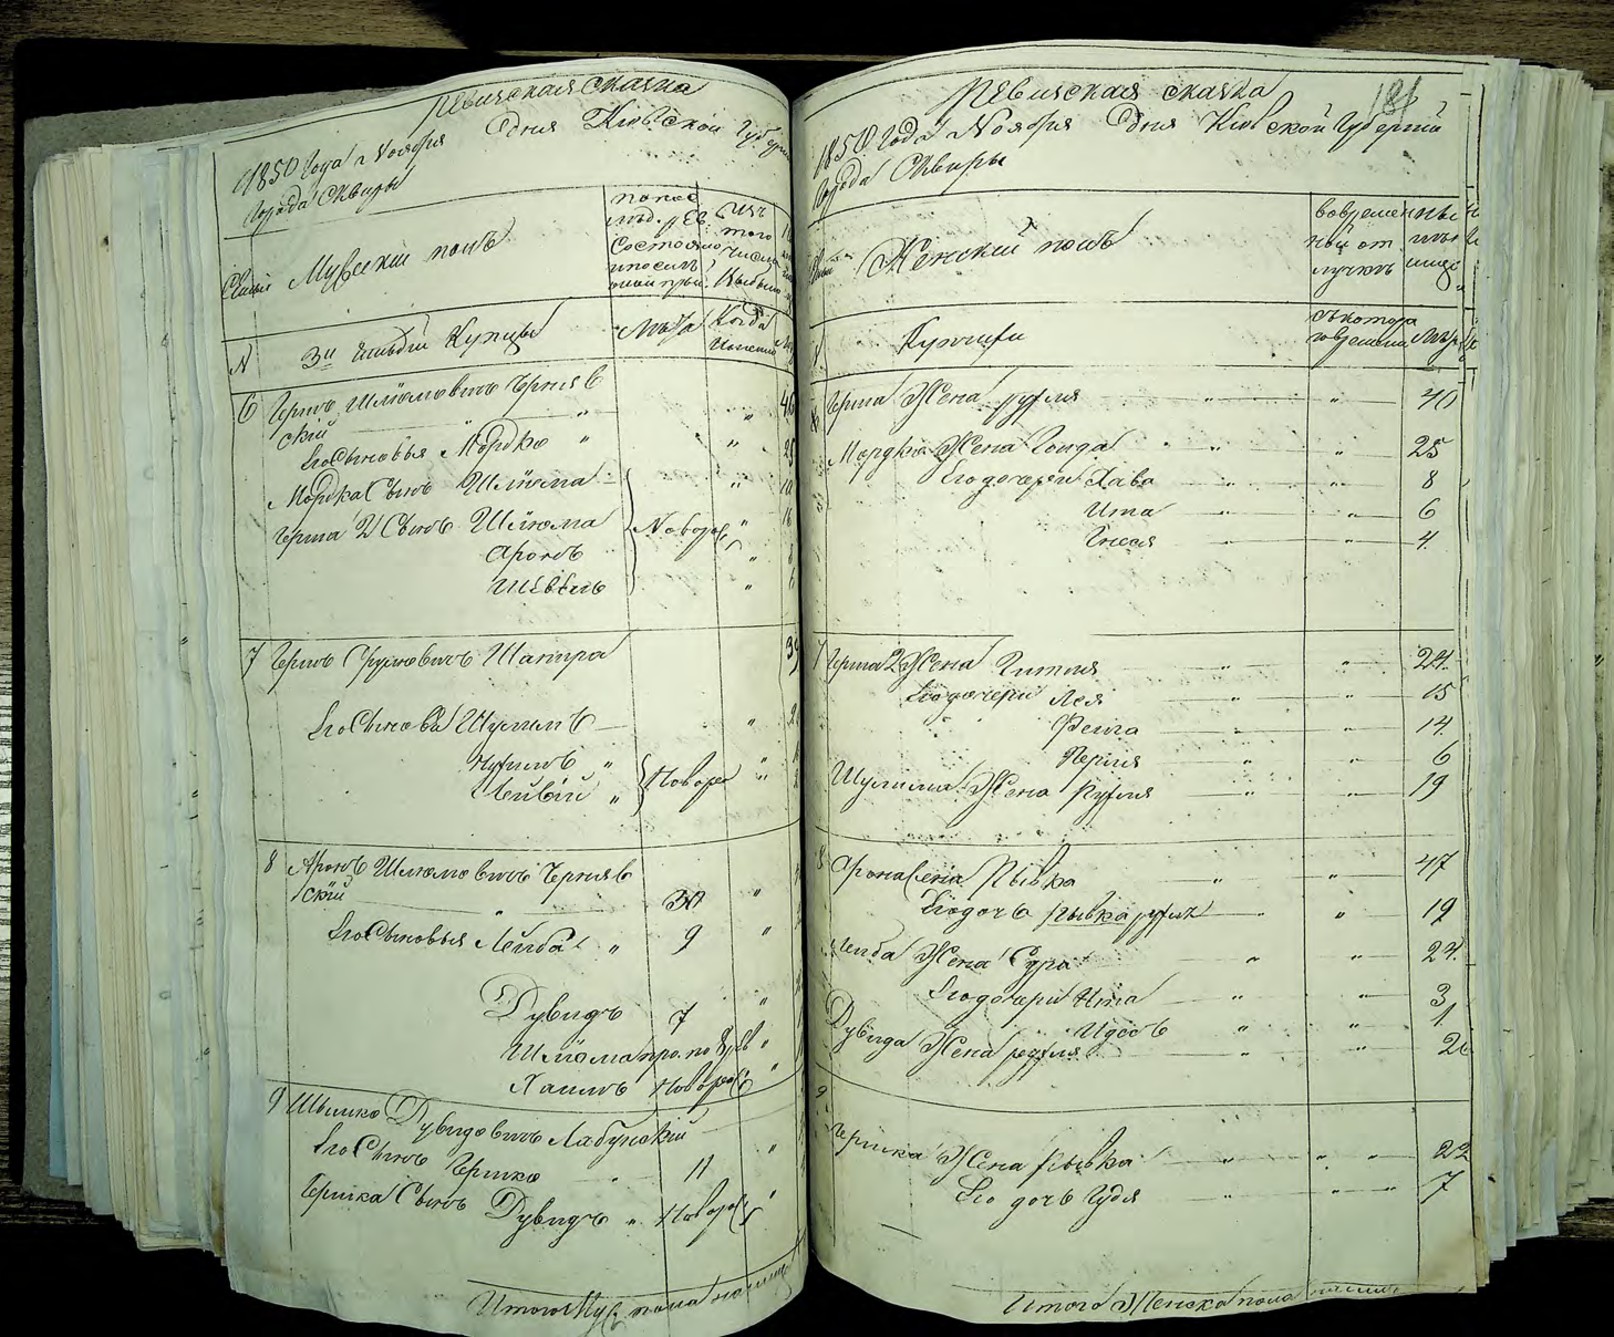 Ревизская сказка
1850 года Ноября дня Киевской Губерн
города Сквиры
Мужеский полъ
№ 3й гильдіи Купцы Лѣта Когда
6 Гершъ Шліомовичъ Чернявскій
Его Сыновья Мордко
Мордка Сынъ Шліома
Герша 2 Сынъ Шліома Новорож
Аронъ
Шевель
7 Гершъ Сруловичъ Шапира
Его Сыновья Шулимъ
Нухимъ
Лейвій Новорож
8 Аронъ Шліомовичъ Чернявскій 30
Его Сыновья Лейба 9
Дувидъ 7
Шліома про. по 8 рев
Хаимъ Новорож
9 Шмилко Дувидовичъ Лабунскій
Его Сынъ Гершко 11
Гершка Сынъ Дувидъ Новорож
Итого Муж пола на лицо
181
Ревизская сказка
1850 года Ноября дня Киевской Губерніи
города Сквиры
Женскій полъ во временной отлучкѣ
Купчихи съ котораго времени Лѣта
Герша Жена рухля 40
Мордка Жена Голда 25
Его дочери Хава 8
Ита 6
Гнеся 4
7 Герша 2 Жена Гитля 24
Его дочери Лея 15
Фейга 14
Перля 6
Шулима Жена Рухля 19
8 Арона Жена Рывка 47
Его дочь рывка рухля 19
Лейба Жена Сура 24
Его дочери Ита 3
Идесь 1
Дувида Жена рухля
9
Гершка Жена Рывка 22
Его дочь Гудя 7
Итого Женска пола